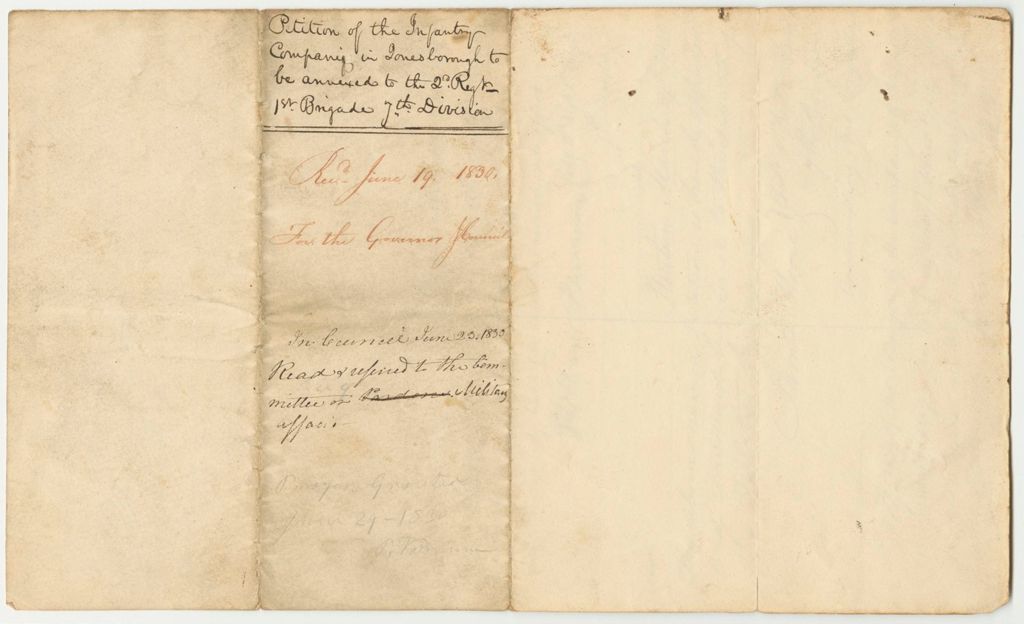 Petition of the Infantry
Company in Jonesborough to
be annexed to the 2d. Regt.
1st Brigade 7th Division
Recd. June 19. 1830.
For the Governor & Council
In Council June 23. 1830
Read & referred to the Com-
mittee on Military
affairs
Prayer Granted
June 29 - 1830